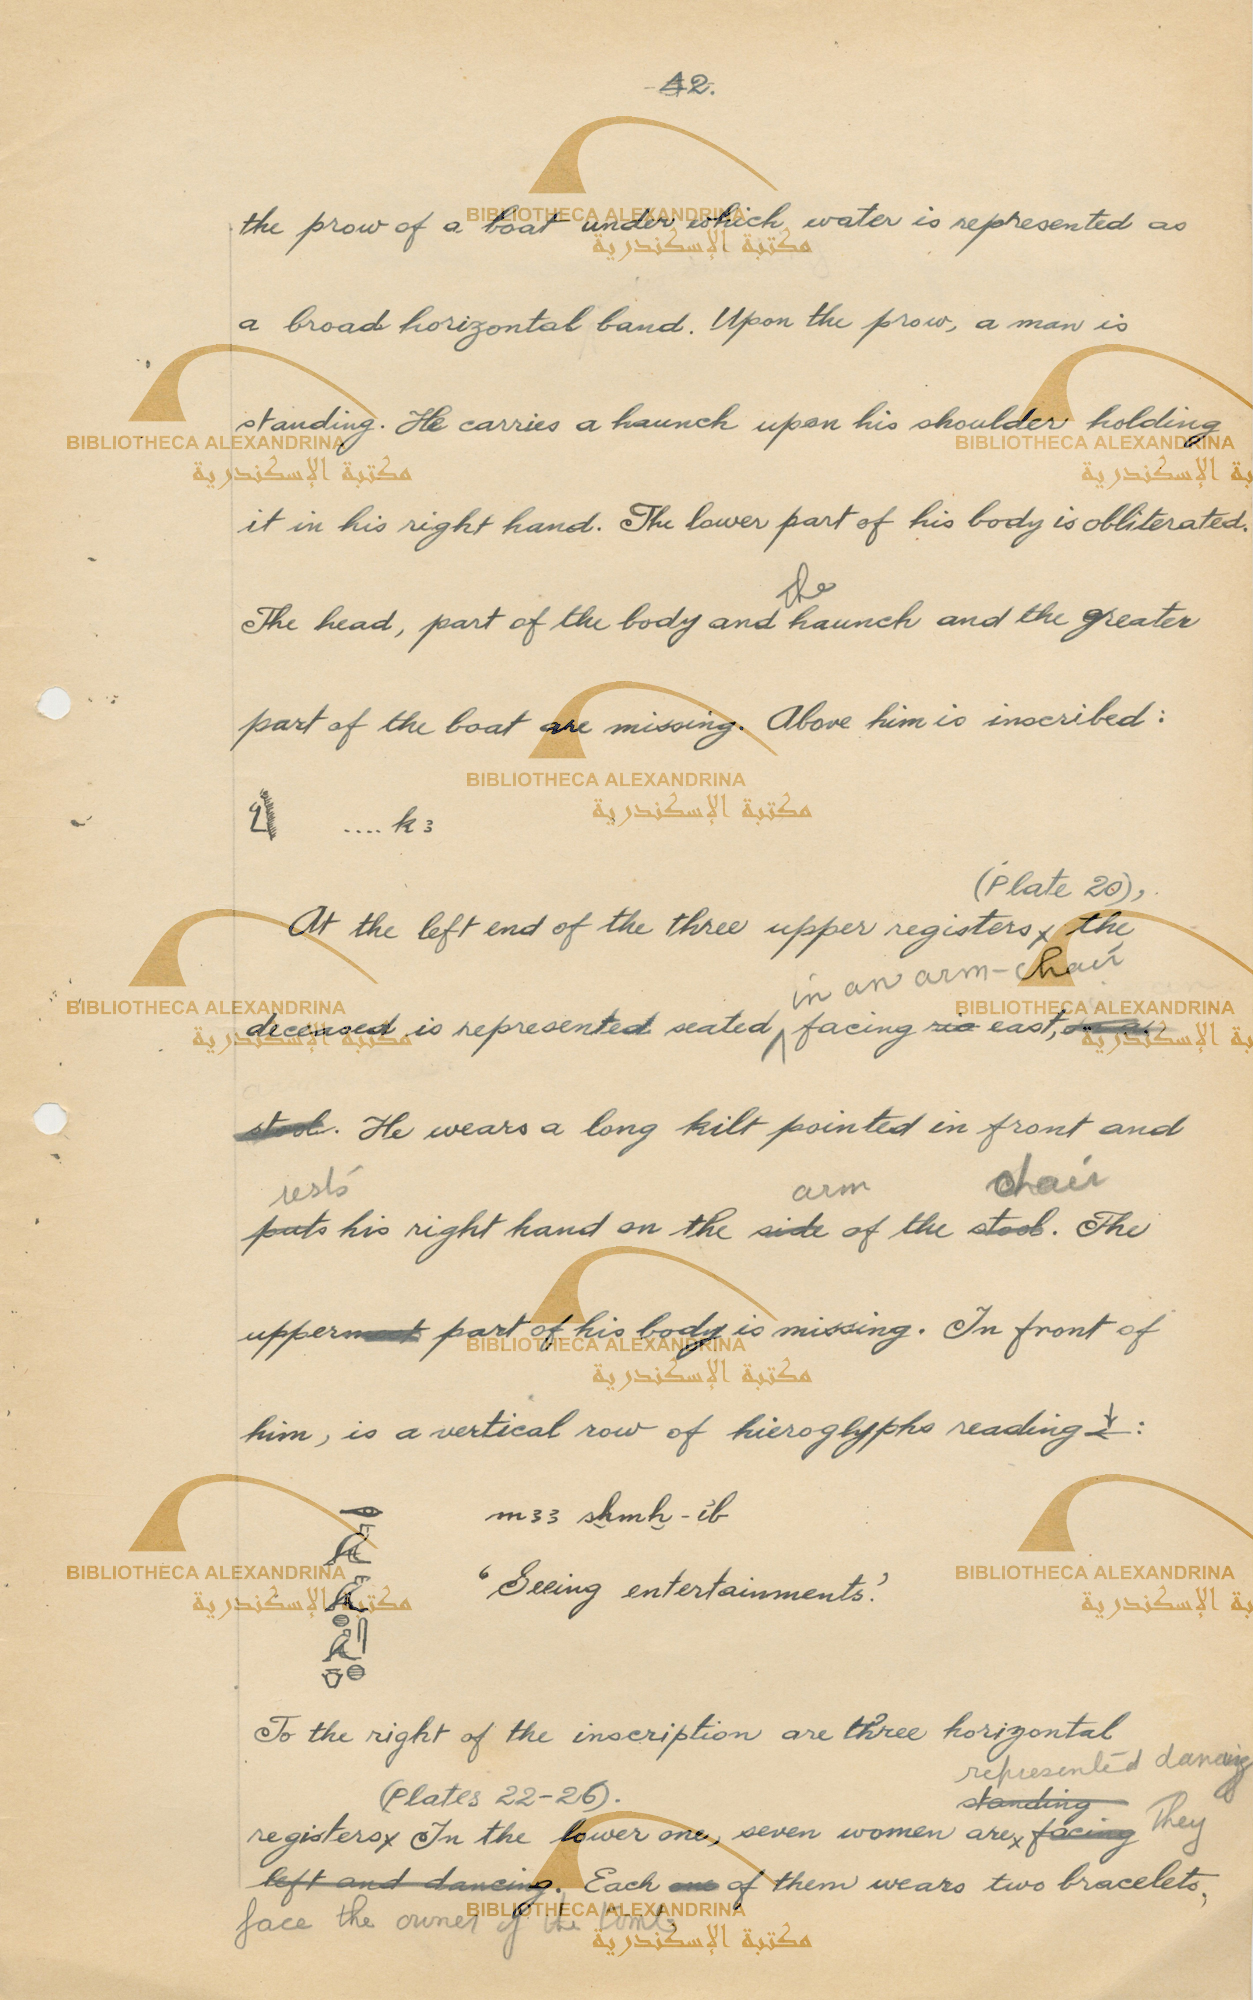 42.
the prow of a boat under which water is represented as
a broad horizontal band. Upon the prow, a man is
standing. He carries a haunch upon his shoulder holding
it in his right hand. The lower part of his body is obliterated.
the
The head, part of the body and haunch and the greater
part of the boat are missing. Above him is inscribed:
.... kꜣ
(Plate 20),
At the left end of the three upper registers x the
in an arm-chair
deceased is represented seated, facing east,
stool. He wears a long kilt pointed in front and
rests arm chair
puts his right hand on the side of the stool. The
uppermost part of his body is missing. In front of
him, is a vertical row of hieroglyphs reading :
mꜣꜣ sḫmḫ-ib
'Seeing entertainments.'
To the right of the inscription are three horizontal
represented dancing
(Plates 22-26). standing
registers x In the lower one, seven women are x facing They
left and dancing. Each one of them wears two bracelets,
face the owner of the tomb
BIBLIOTHECA ALEXANDRINA
مكتبة الإسكندرية